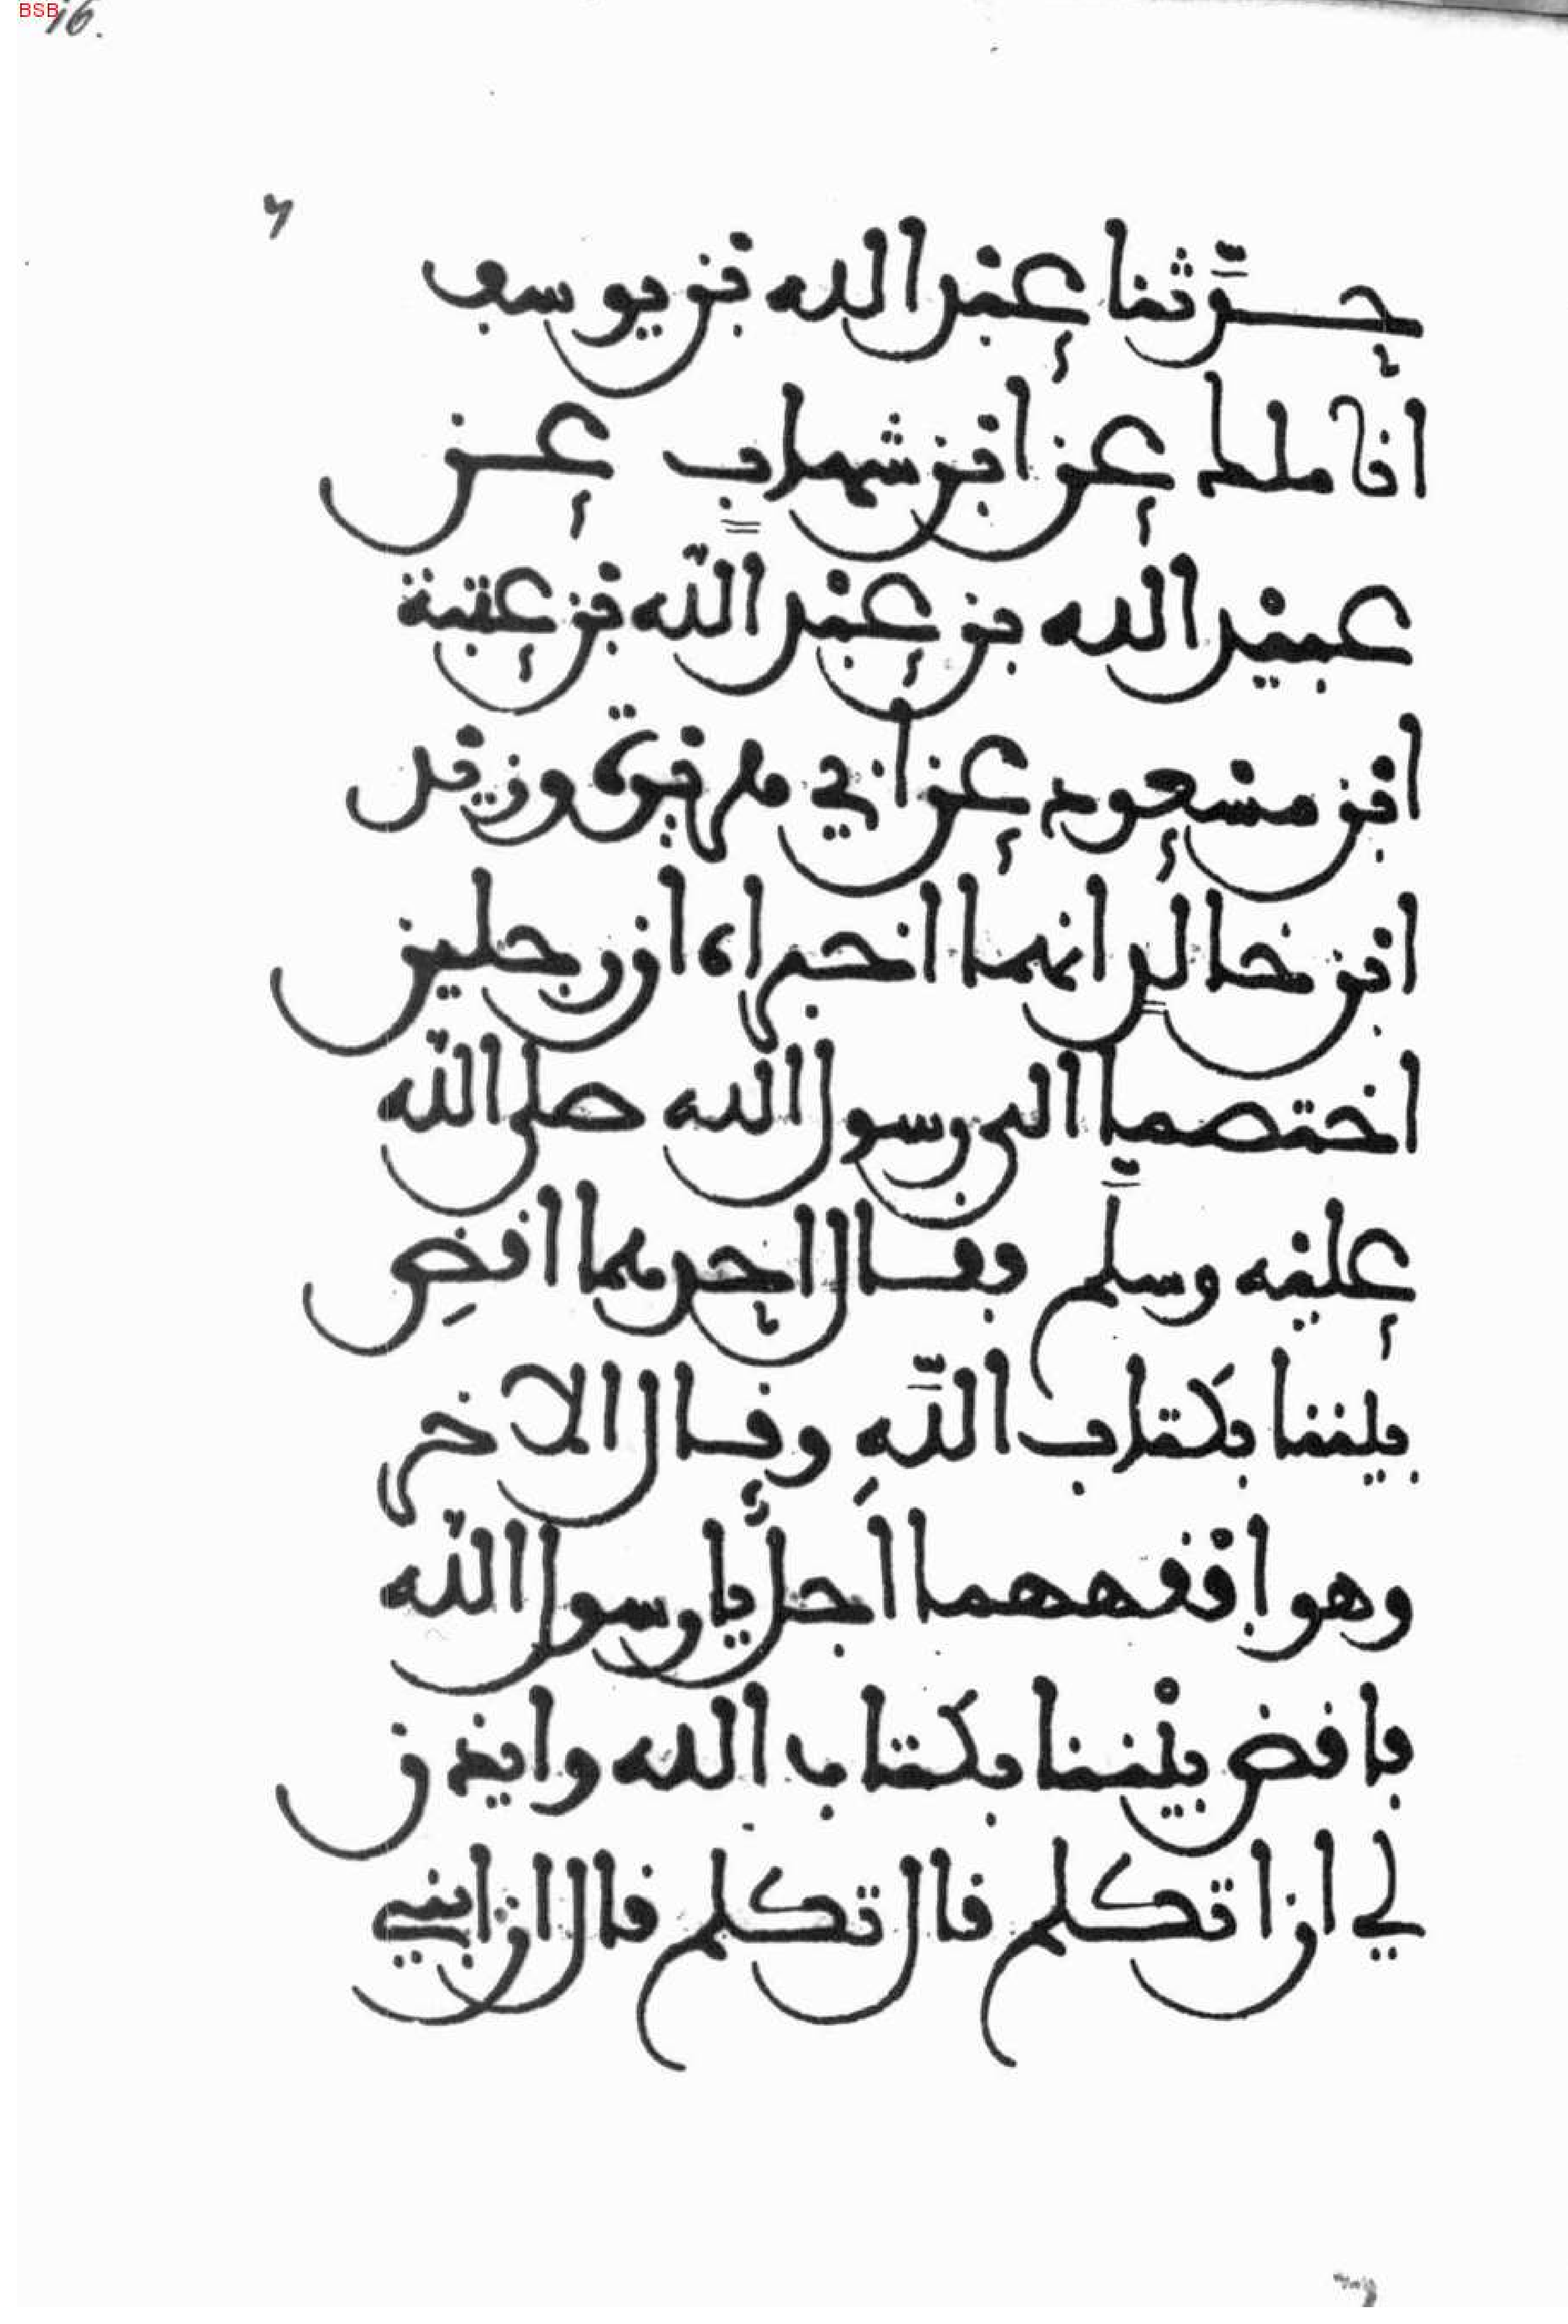 BSB
16.
حدّثنا عبد الله بن يوسف
انا ملك عن ابن شهاب عن
عبيد الله بن عبد اللّه بن عتبة
ابن مسعود عن ابي هريرة وزيد
ابن خالد انهما اخبراه ان رجلين
اختصما الى رسول الله صلى اللّه
عليه وسلّم فقال احدهما اقضِ
بيننا بكتاب اللّهِ وقال الاخر
وهو افقههما اجل يا رسول اللّه
فاقض بيْننا بكتاب الله وايذن
لي ان اتكلم قال تكلم قال ان ابني